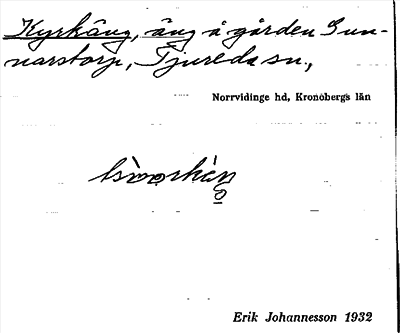 Kyrkäng, äng å gården Gun-
narstorp, Tjureda sn,
Norrvidinge hd, Kronobergs län
Erik Johannesson 1932